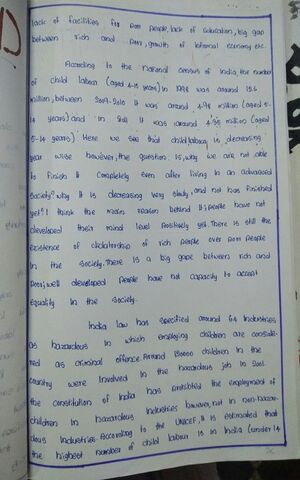 lack of facilities for poor people, lack of education, big gap
between rich and poor, growth of informal economy etc.
According to the national census of India, the number
of child labour (aged 4-15 years) in 1998 was around 12.6
million, between 2009-2010 it was around 4.98 million (aged 5-
14 years) and in 2011 it was around 4.35 million (aged
5-14 years). Here we see that child labour is decreasing
year wise however, the question is, why we are not able
to finish it completely even after living in an advanced
society? why it is decreasing very steady, and not has finished
yet? I think the main reason behind it; people have not
developed their mind level positively yet. There is still the
existence of dictatorship of rich people over poor people
in the society. There is a big gape between rich and
poor; well developed people have not capacity to accept
equality in the society.
India law has specified around 64 industries
as hazardous in which employing children are conside-
red as criminal offence. Around 120000 children in the
country were involved in the hazardous job in 2001.
the constitution of India has prohibited the employment of
children in hazardous industries however, not in non-hazar-
dous industries. According to the UNICEF, it is estimated that
the highest number of child labour is in India (under 14